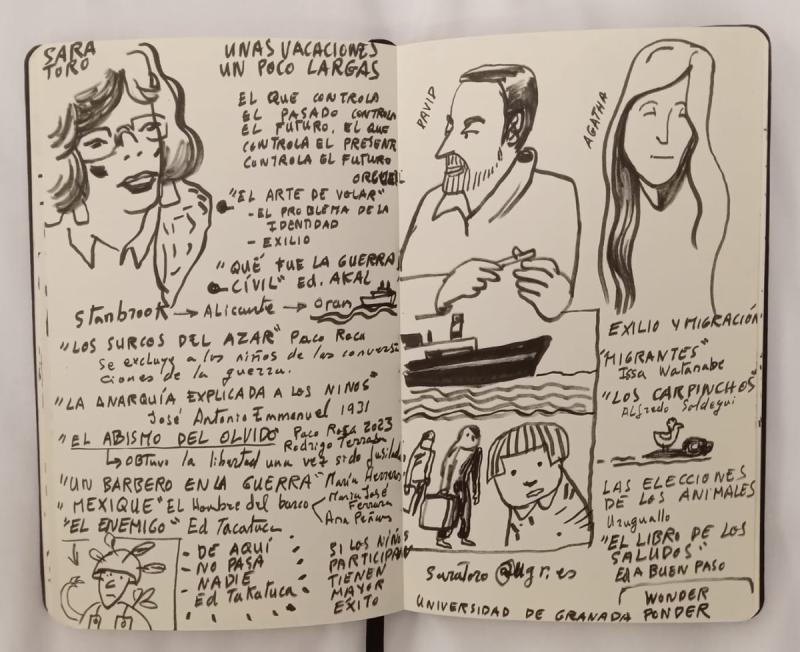 SARA
TORO
UNAS VACACIONES
UN POCO LARGAS
EL QUE CONTROLA
EL PASADO CONTROLA
EL FUTURO, EL QUE
CONTROLA EL PRESENTE
CONTROLA EL FUTURO
ORWELL
"EL ARTE DE VOLAR"
- EL PROBLEMA DE LA
IDENTIDAD
- EXILIO
"QUÉ FUE LA GUERRA
CIVIL" Ed. AKAL
Stanbrook → Alicante → Oran
"LOS SURCOS DEL AZAR" Paco Roca
Se excluye a los niños de las conversa
ciones de la guerra.
"LA ANARQUÍA EXPLICADA A LOS NIÑOS"
José Antonio Emmanuel 1931
"EL ABISMO DEL OLVIDO" Paco Roca 2023
Rodrigo Terrasa
↳ OBTUVO la libertad una vez sido fusilado
"UN BARBERO EN LA GUERRA" María Herreros
"MEXIQUE" El Nombre del barco < María José
Ferrada
Ana Peñas
"EL ENEMIGO" Ed Tacatuca
- DE AQUÍ
- NO PASA
NADIE
Ed TaKatuca
SI LOS NIÑOS
PARTICIPAN
TIENEN
MAYOR
EXITO
DAVID
AGATHA
EXILIO Y MIGRACIÓN
"MIGRANTES"
Issa Watanabe
"LOS CARPINCHOS"
Alfredo Soldegui
LAS ELECCIONES
DE LOS ANIMALES
Uruguallo
"EL LIBRO DE LOS
SALUDOS"
Ed A BUEN PASO
WONDER
PONDER
saratoro@ugr.es
UNIVERSIDAD DE GRANADA